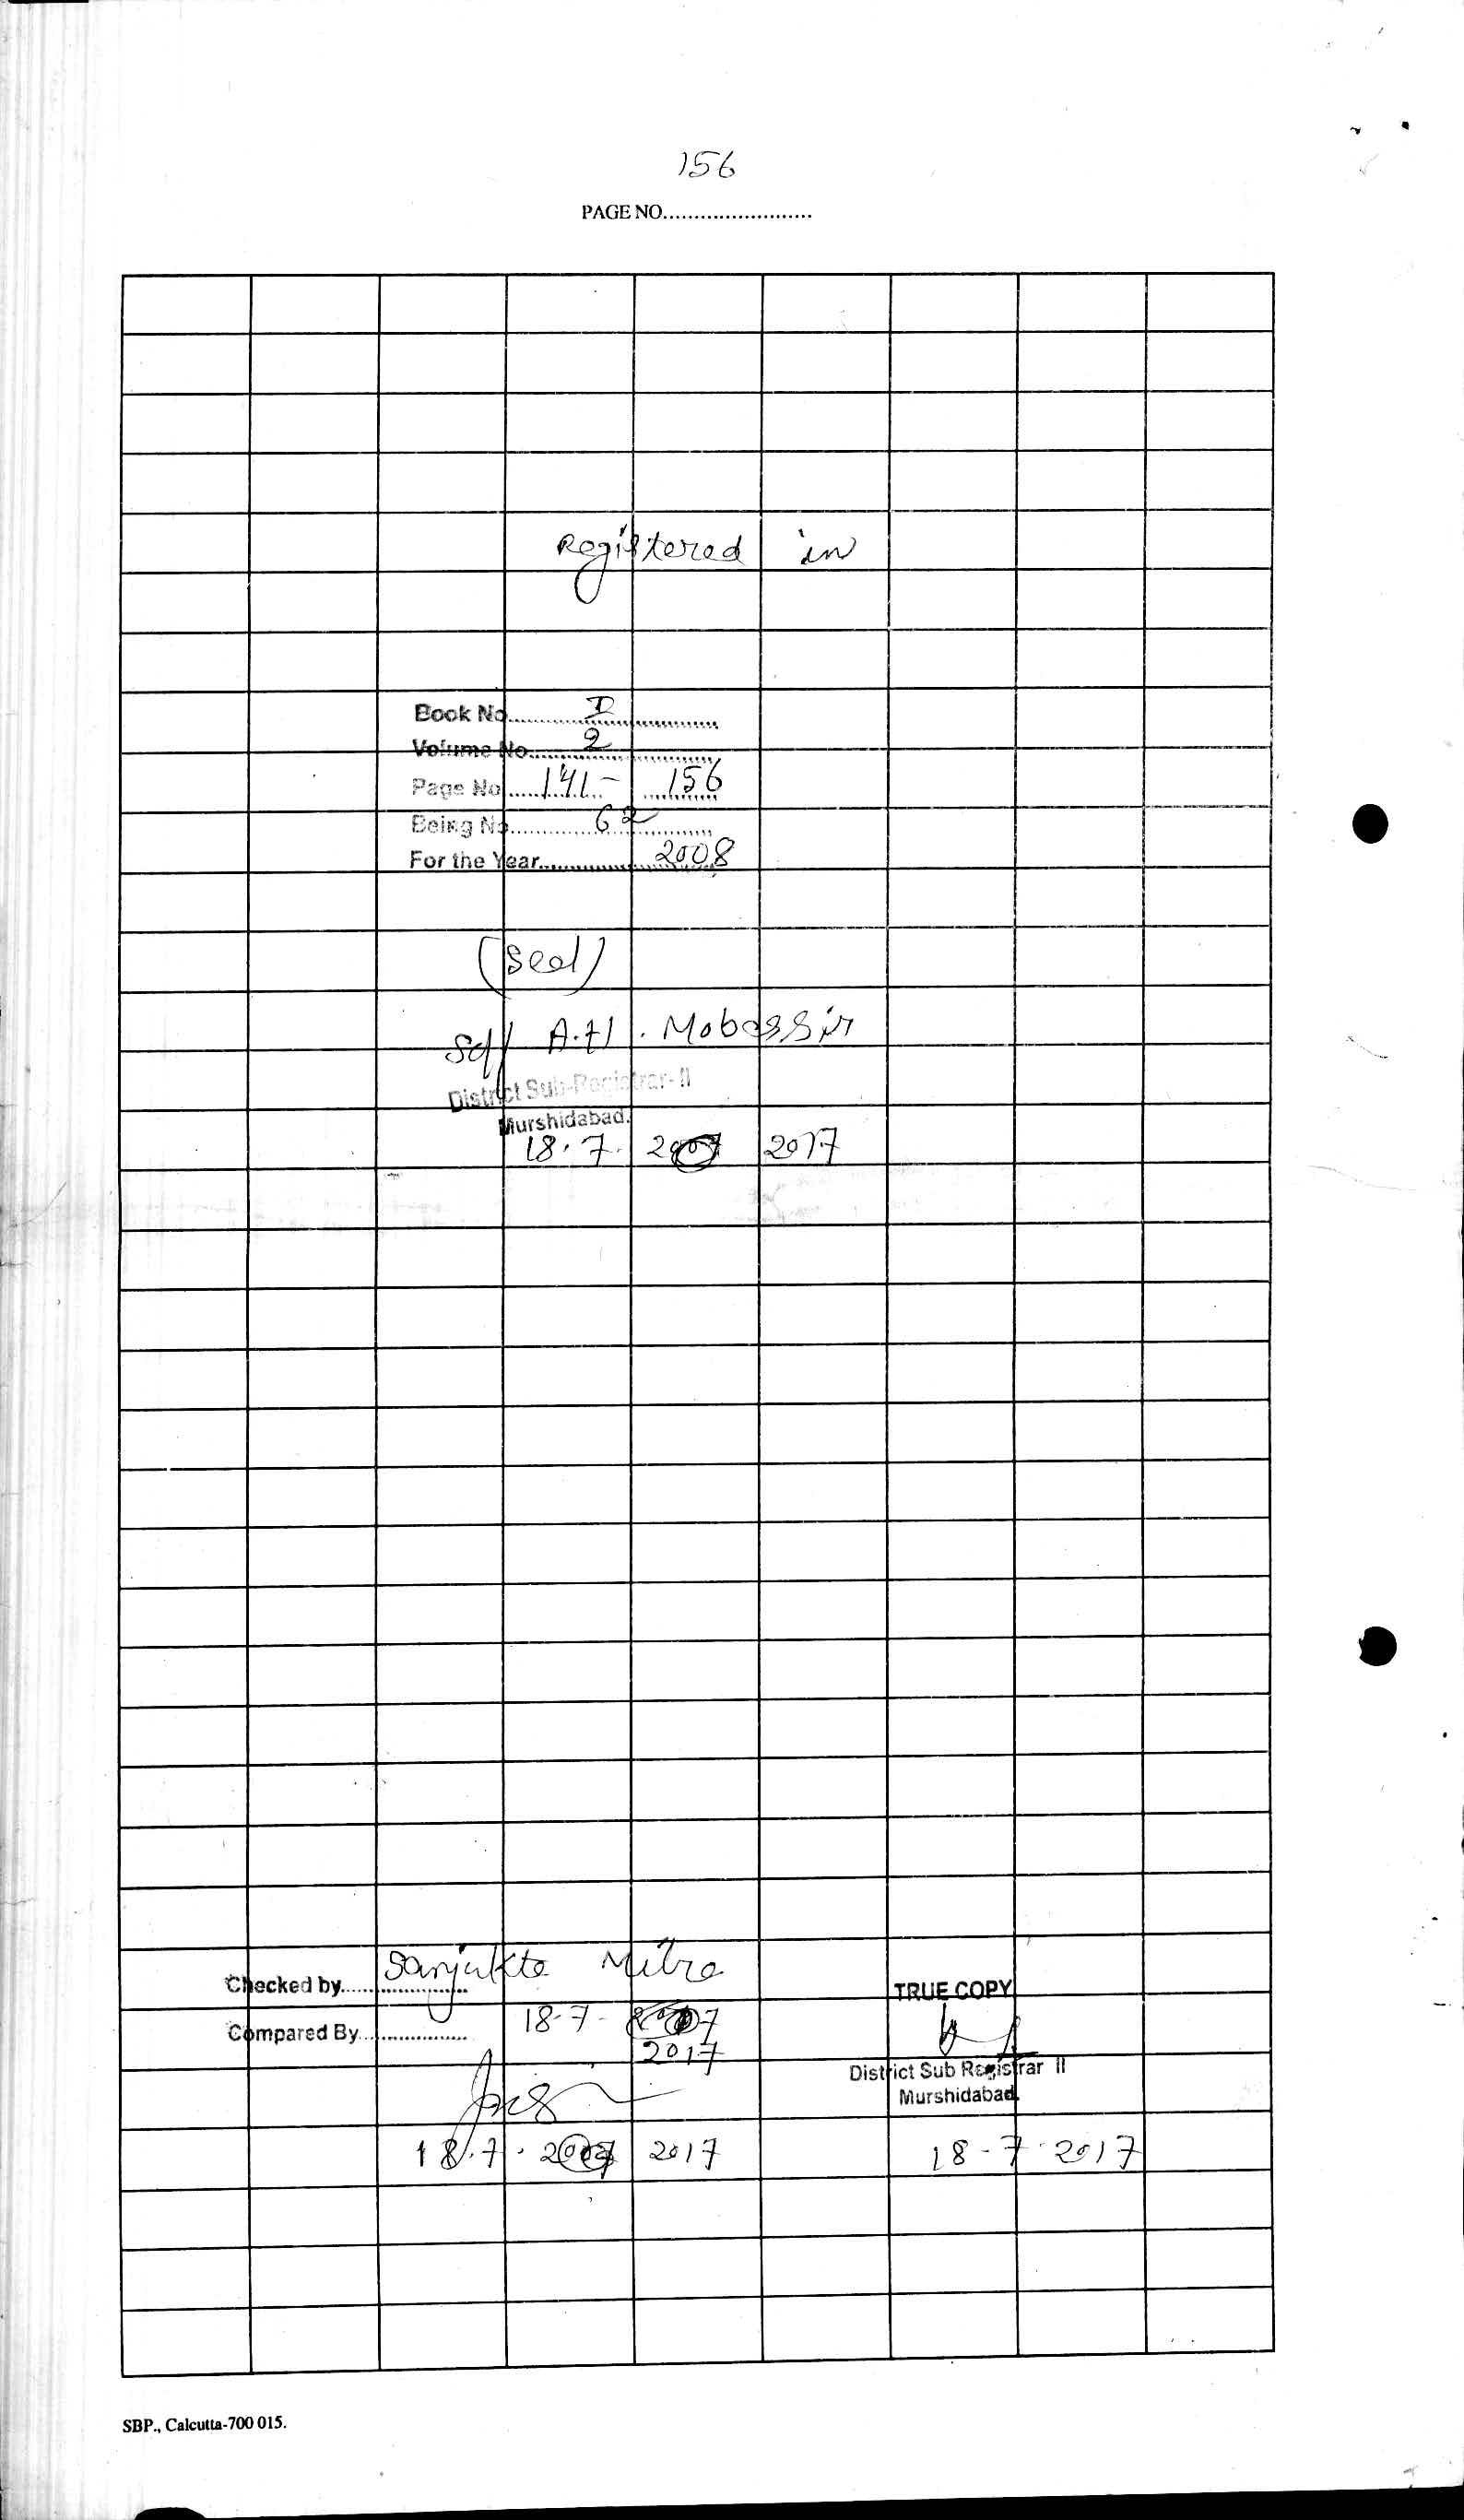 156
PAGE NO........................
Registered in
Book No. I
Volume No. 2
Page No. 141- 156
Being No. 62
For the Year. 2008
(Seal)
Sd/ A.H. Mobassir
District Sub-Registrar- II
Murshidabad.
18.7. 2017
Checked by Sanjukta Mitra
18-7-
Compared By
2017
TRUE COPY
District Sub Registrar II
Murshidabad.
18.7. 2017
18-7-2017
SBP., Calcutta-700 015.